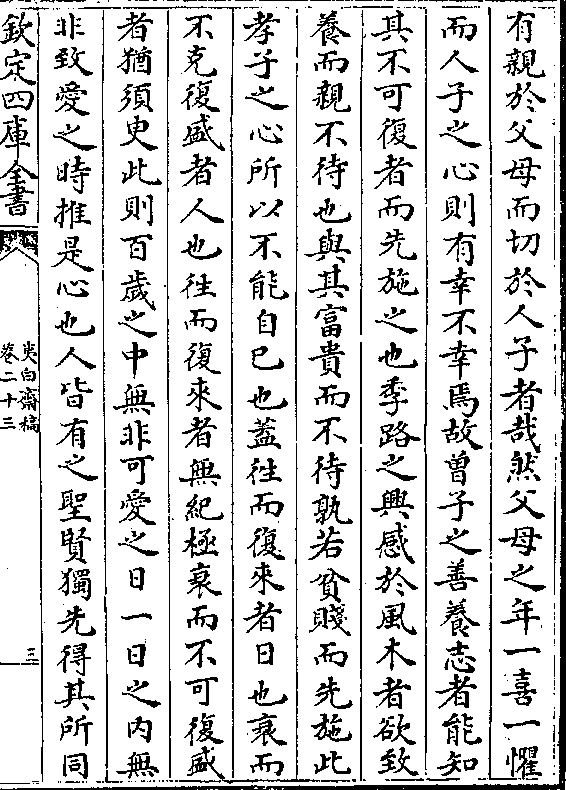 有親於父母而切於人子者哉然父母之年一喜一懼
而人子之心則有幸不幸焉故曽子之善養志者能知
其不可復者而先施之也季路之興感於風木者欲致
養而親不待也與其富貴而不待孰若貧賤而先施此
孝子之心所以不能自已也蓋往而復來者日也衰而
不克復盛者人也徃而復來者無紀極衰而不可復盛
者猶須臾此則百歲之中無非可愛之日一日之内無
非致愛之時推是心也人皆有之聖賢獨先得其所同
欽定四庫全書
夷白齋稿
卷二十三
三